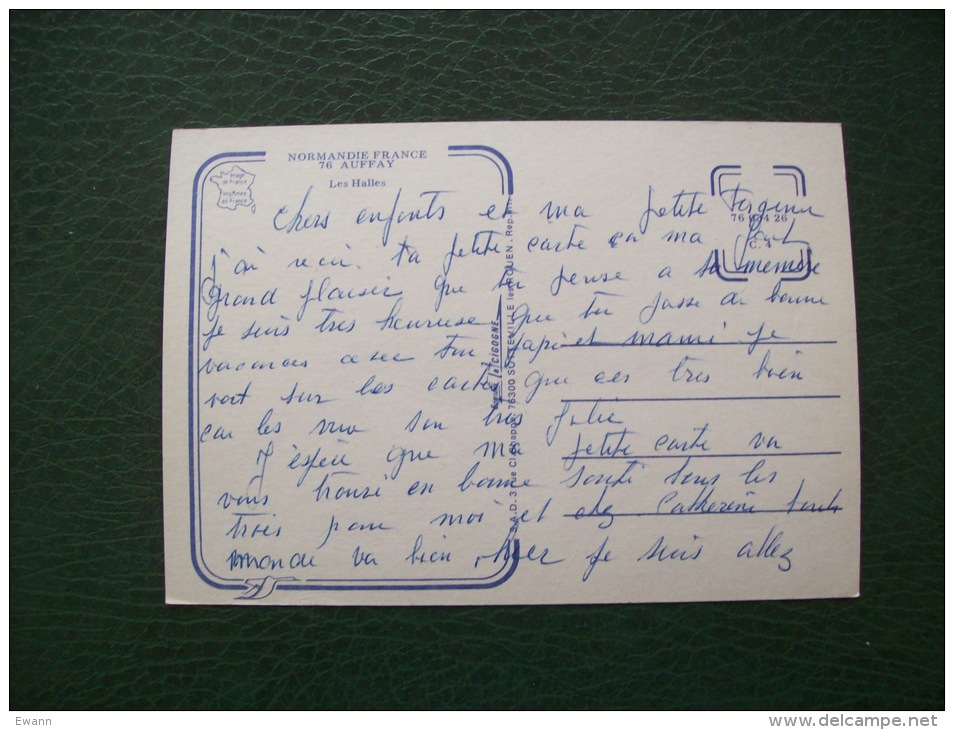 NORMANDIE FRANCE
76 AUFFAY
Les Halles
image
de France
imprimée
en France
76 034 26
C. 4
la CIGOGNE
S.A.D. 3, rue Clapeyron, 76300 SOTTEVILLE les ROUEN - Rep.
chers enfants et ma petite
j'ai recu ta petite carte ça ma fait
grand plaisir que tu pense a ta memere
je suis tres heureuse que tu passe de bonne
vacances avec ton papi et mami je
voit sur les cartes que ces tres bien
car les vu son tres jolie
J'espère que ma petite carte va
vous trouvé en bonne santé tous les
trois pour moi et chez Catherine tout
monde va bien, hier je suis allez
Ewann
www.delcampe.net